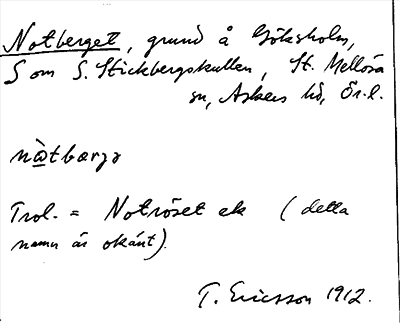 Notberget, grund å Göksholm,
S om S. Stickbergskullen, St. Mellösa
sn, Askers hd, Ör. l.
nὰ̣tbærjə
Trol. = Notröset ek (detta
namn är okänt).
T. Ericsson 1912.